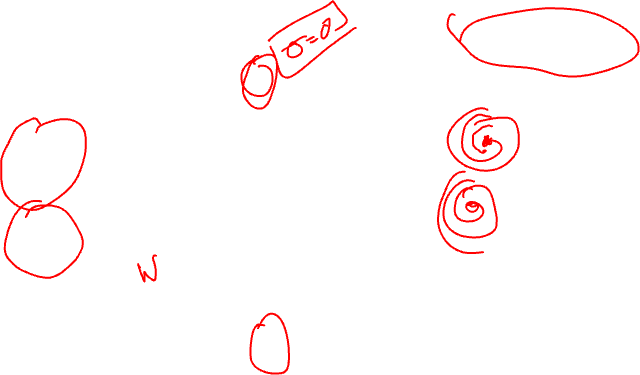 σ=0
W